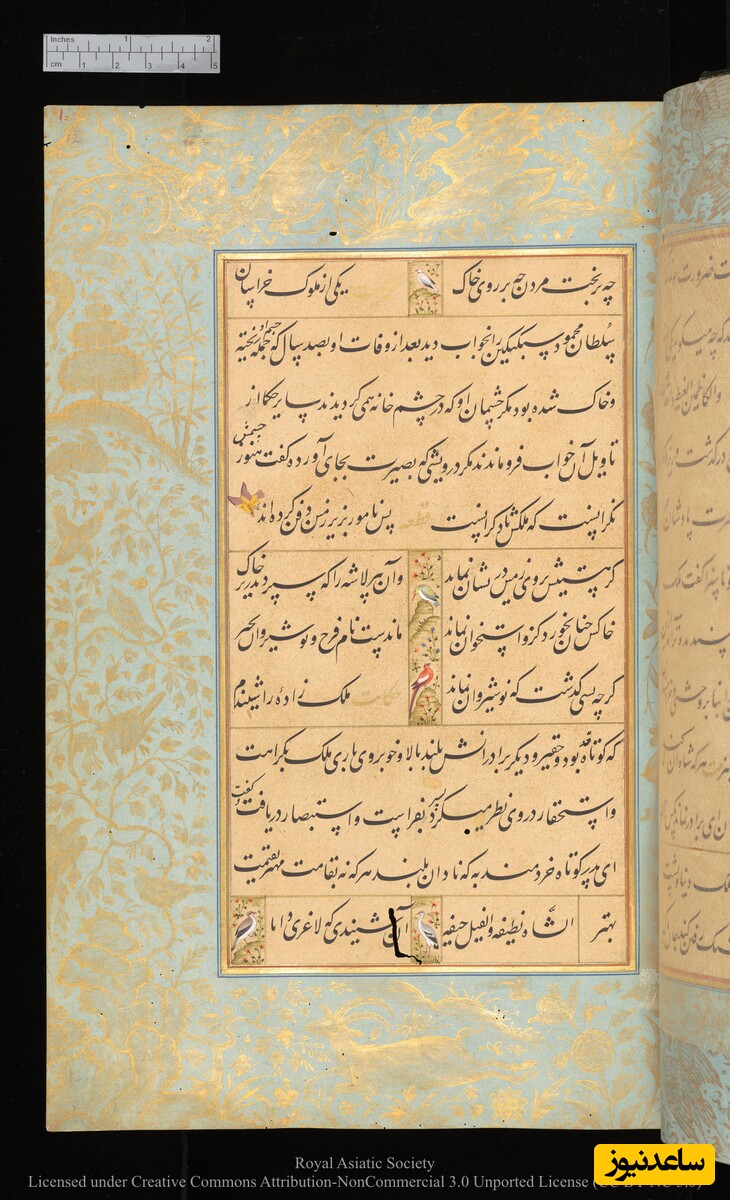 Inches 1 2
cm 1 2 3 4 5
چه بر تخت مردن چه بر روی خاک یکی از ملوک خراسان
سلطان محمود سبکتکین را بخواب دید بعد از وفات او بصد سال که جمله وجود او ریخته
و خاک شده بود مکر چشمان او که در چشم خانه همی کردیدند سایر حکما از
تاویل آن خواب فرو ماندند مکر درویشی که بصیرت بجای آورده کفت هنوز چشمش
نکرانست که ملکش با دکرانست بس نامور بزیر زمین دفن کرده اند
کز هستیش بروی زمین در نشان نماند وان پیر لاشه را که سپردند زیر خاک
خاکش چنان بخورد کزو استخوان نماند ماندست نام فرخ نوشیروان بخیر
کرچه بسی کذشت که نوشیروان نماند حکایت ملک زاده را شنیدم
که کوتاه قد بود و حقیر و دیکر برادرانش بلند بالا و خوبروی باری ملک بکراهت
و استحقار در وی نظر میکرد پسر بفراست و استبصار دریافت و کفت
ای پدر کوتاه خردمند به که نادان بلند هر که نه بقامت مهتر بقیمت
بهتر الشاة نظیفه والفیل جیفه آن شنیدی که لاغری دانا
Royal Asiatic Society
Licensed under Creative Commons Attribution-NonCommercial 3.0 Unported License
ساعدنیوز